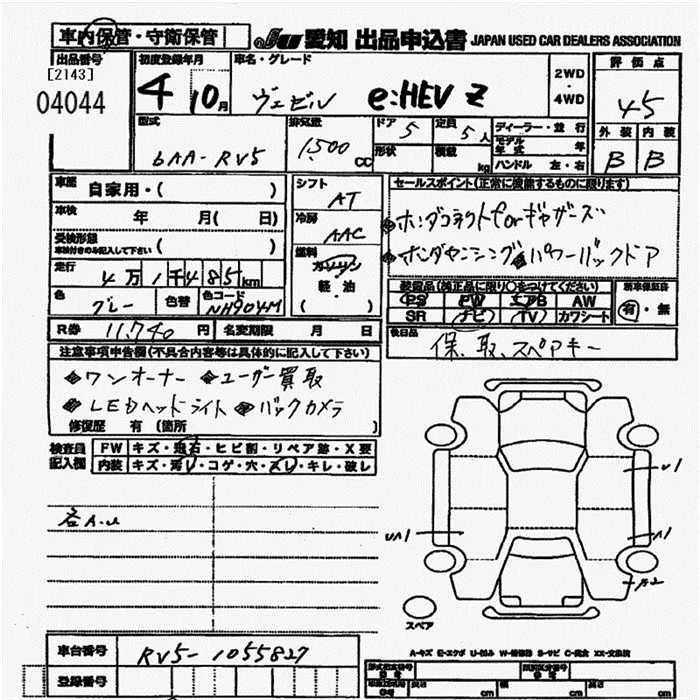 車内保管・守衛保管
JU 愛知 出品申込書 JAPAN USED CAR DEALERS ASSOCIATION
出品番号
[2143]
04044
初度登録年月
4 10月
車名・グレード
ヴェゼル e:HEV Z
2WD
・
4WD
評価点
45
外装 内装
B B
型式
6AA-RV5
排気量
1500 CC
ドア 5
定員 5人
形状
積載 kg
ディーラー・並行
モデル年式 年
ハンドル 左・右
車歴 自家用・( )
車検 年 月( 日)
受検形態
車検付きのみ記入して下さい ( )
走行 4万1千485km
色 グレー 色替 色コード NH904M
R券 11,740円 名変期限 月 日
シフト
AT
冷房
AAC
燃料
ガソリン
・
軽・油
セールスポイント(正常に機能するものに限ります)
ホンダコネクトforギャザーズ
ホンダセンシング パワーバックドア
装備品(純正品に限り○をつけてください)
PS PW エアB AW
SR ナビ TV カワシート
新車保証書
有・無
後日品
保、取、スペアキー
注意事項申告欄(不具合内容等は具体的に記入して下さい)
ワンオーナー ユーザー買取
LEDヘッドライト バックカメラ
修復歴 有(箇所 )
検査員記入欄
FW キズ・飛石・ヒビ割・リペア跡・X要
内装 キズ・汚レ・コゲ・穴・スレ・キレ・破レ
各A.U
U1
A1
UA1
A2
スペア
A-キズ E-エクボ U-凹み W-補修跡 S-サビ C-腐食 XX-交換済
車台番号 RV5-1055827
登録番号
cm cm cm